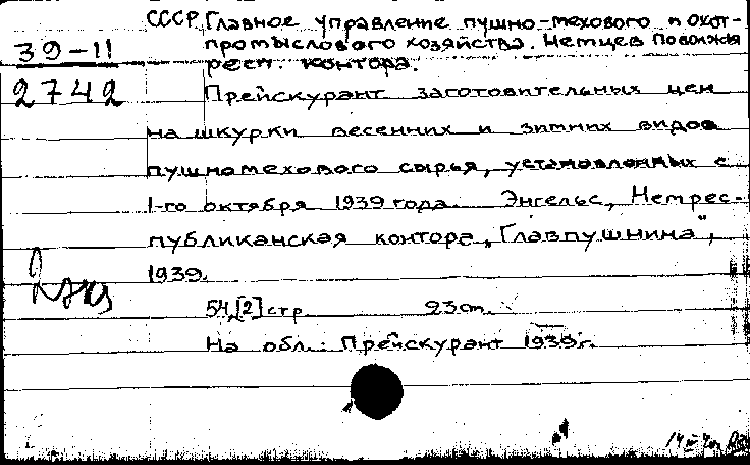 СССР. Главное управление пушно-мехового и охот-
39-11
промыслового хозяйства. Немцев Поволжья
респ. контора.
2742
Прейскурант заготовительных цен
на шкурки весенних и зимних видов
пушномехового сырья, установленных с
1-го октября 1939 года. Энгельс, Немрес-
публиканская контора „Главпушнина",
1939.
2 экз
54,[2] стр. 23 см.
На обл.: Прейскурант 1939 г.